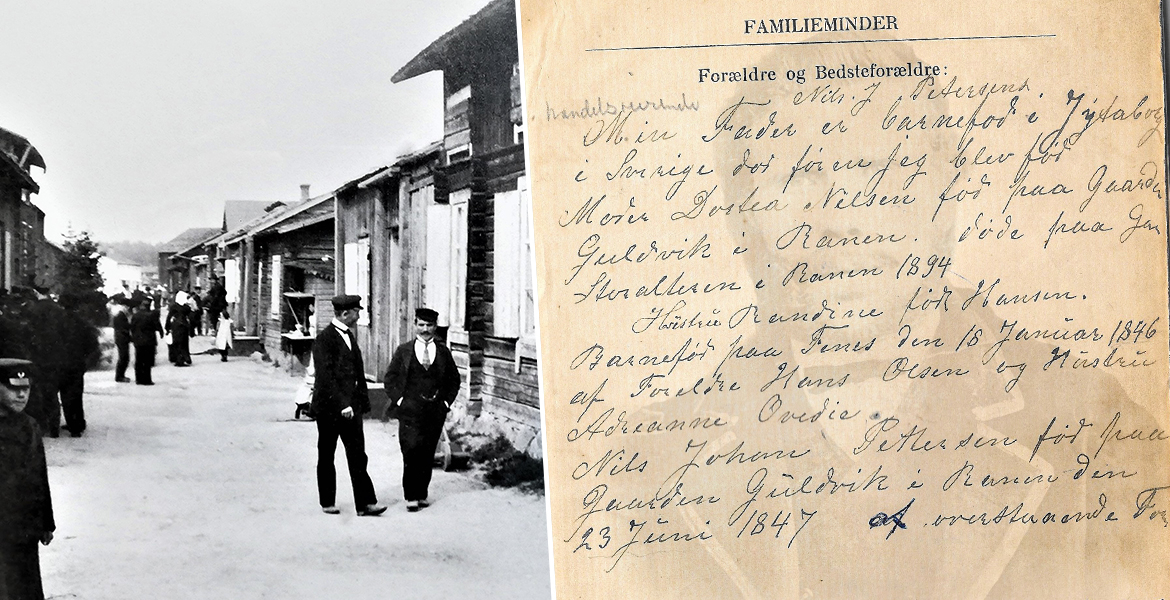 FAMILIEMINDER
Forældre og Bedsteforældre:
Nils. J Petersens.
handelsreisende
Min Fader er barnefød i Jyta
i Sverige død føren jeg blev fød
Moder Dostea Nilsen fød paa Gaarden
Guldvik i Ranen. døde paa
Storalteren i Ranen 1894
Hüstrü Randine født Hansen.
Barnefød paa Fenes den 18 Januar 1846
af Foreldre Hans Olsen og Hüstrü
Adreanne Ovedie.
Nils Johan Pettersen fød paa
Gaarden Güldvik i Ranen den
23 Jüni 1847 af overstaaende For